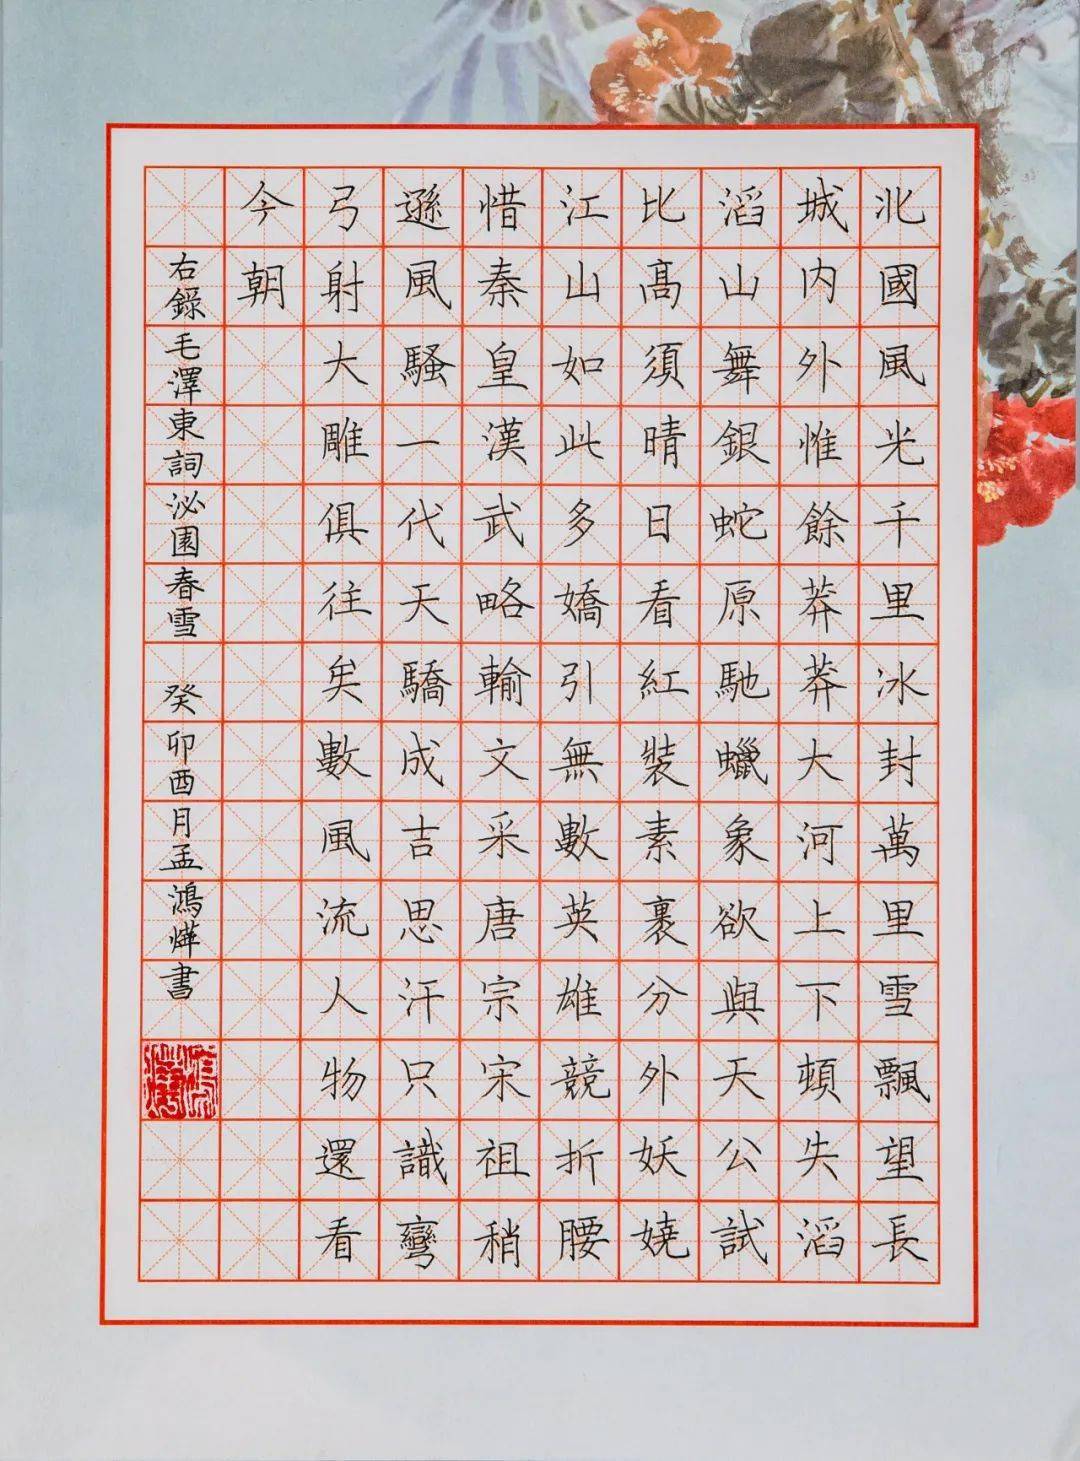 北國風光千里冰封萬里雪飄望長
城内外惟餘莽莽大河上下頓失滔
滔山舞銀蛇原馳蠟象欲與天公試
比髙須晴日看紅裝素裹分外妖嬈
江山如此多嬌引無數英雄競折腰
惜秦皇漢武略輸文采唐宗宋祖稍
遜風騷一代天驕成吉思汗只識彎
弓射大雕俱往矣數風流人物還看
今朝
右錄毛澤東詞沁園春雪 癸卯酉月孟鴻燁書